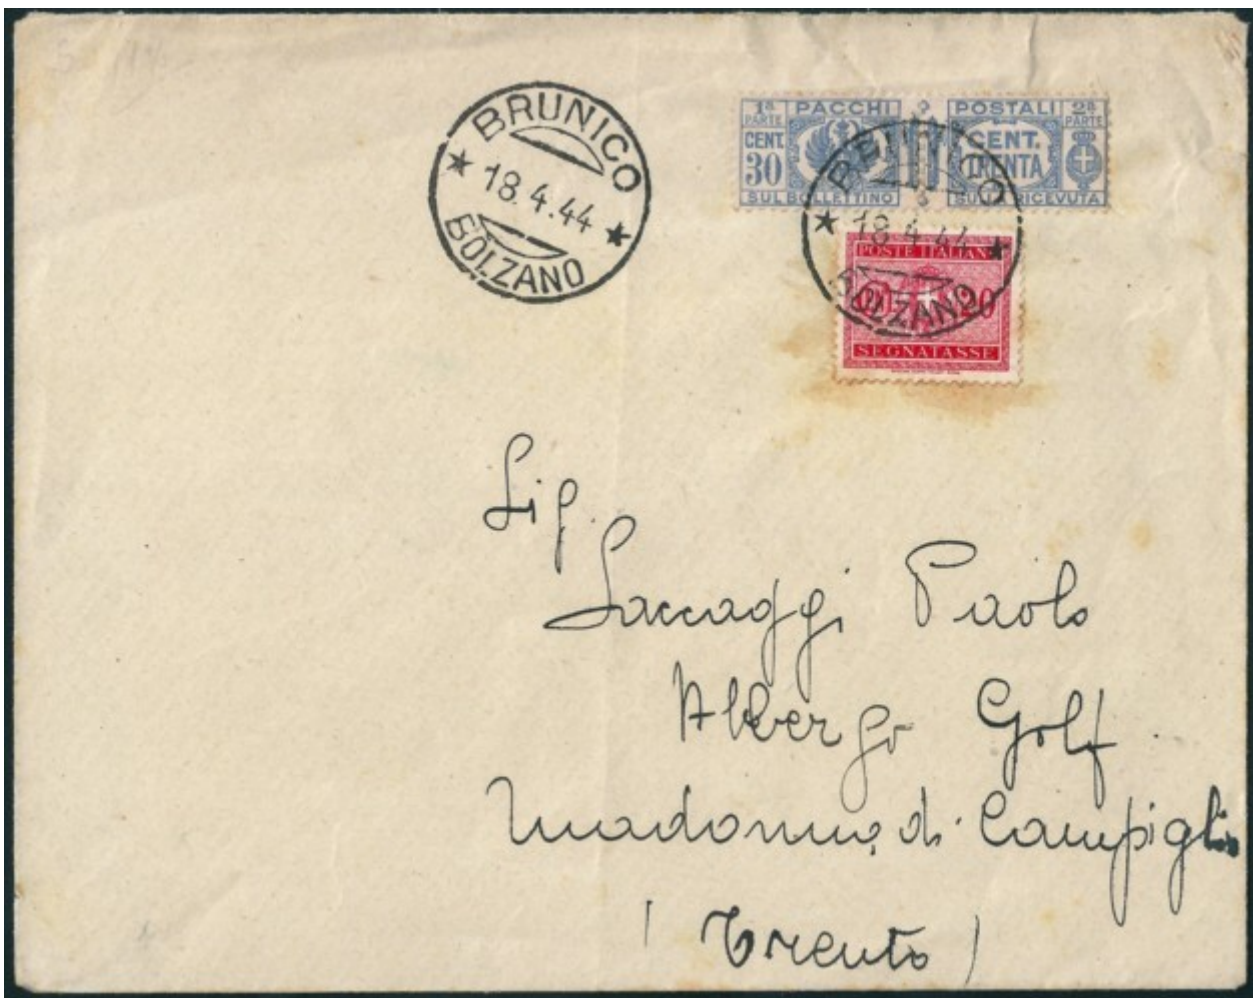 BRUNICO
18.4.44
BOLZANO
1ª PARTE PACCHI POSTALI 2ª PARTE
CENT. 30 CENT. TRENTA
SUL BOLLETTINO SULLA RICEVUTA
BRUNICO
18 4 44
BOLZANO
POSTE ITALIANE
20
SEGNATASSE
Sig.
Saccaggi Paolo
Albergo Golf
Madonna di Campiglio
(Trento)